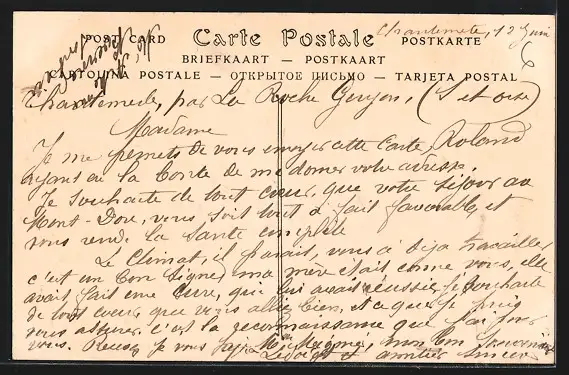 POST CARD
Carte Postale
POSTKARTE
BRIEFKAART — POSTKAART
CARTOLINA POSTALE — ОТКРЫТОЕ ПИСЬМО — TARJETA POSTAL
Chantemele, 12 Juin
Chantemele, par La Roche Guyon, (S et oise)
Madame
Je me permets de vous envoyer cette Carte, Roland
ayant eu la bonté de me donner votre adresse.
Je souhaite de tout cœur, que votre séjour au
Mont-Dore, vous soit tout à fait favorable, et
vous rende la santé complète
Le Climat, il parait, vous a déja travaillée
c'est un bon signe, ma mère était comme vous, elle
avait fait une Cure, qui lui avait réussie, je souhaite
de tout cœur que vous alliez bien, et ce que je puis
vous assurer c'est la reconnaissance que j'ai pour
vous. Recevez je vous prie mon bon souvenir